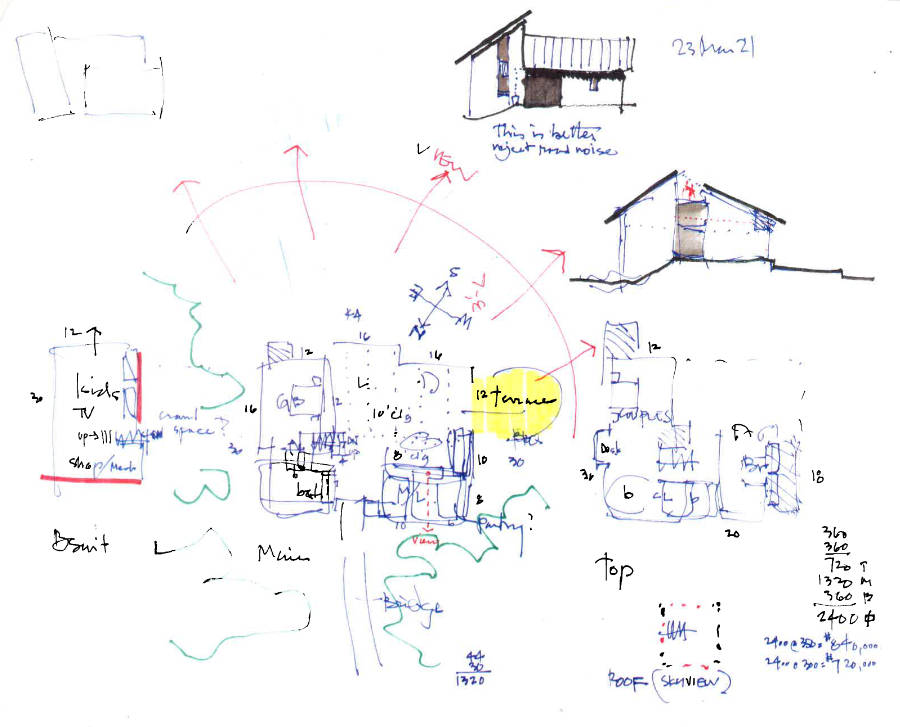 23 Mar 21
This is better,
reject road noise
VIEW
S
N
12
30
kids
TV
up→
crawl
space?
shop/Mech
Bsmt
16
12
16
16
GB
L
D
10' clg
12 terrace
30
8'
clg
10
bath
M
L
8
10
6
Pantry?
view
Main
Bridge
44
30
1320
12
COUPLES
Deck
30
b
CL
b
Br
18
20
TOP
360
360
720 T
1320 M
360 B
2400 ф
2400 @ 350 = $840,000
2400 @ 300 = $720,000
ROOF (SKYVIEW)